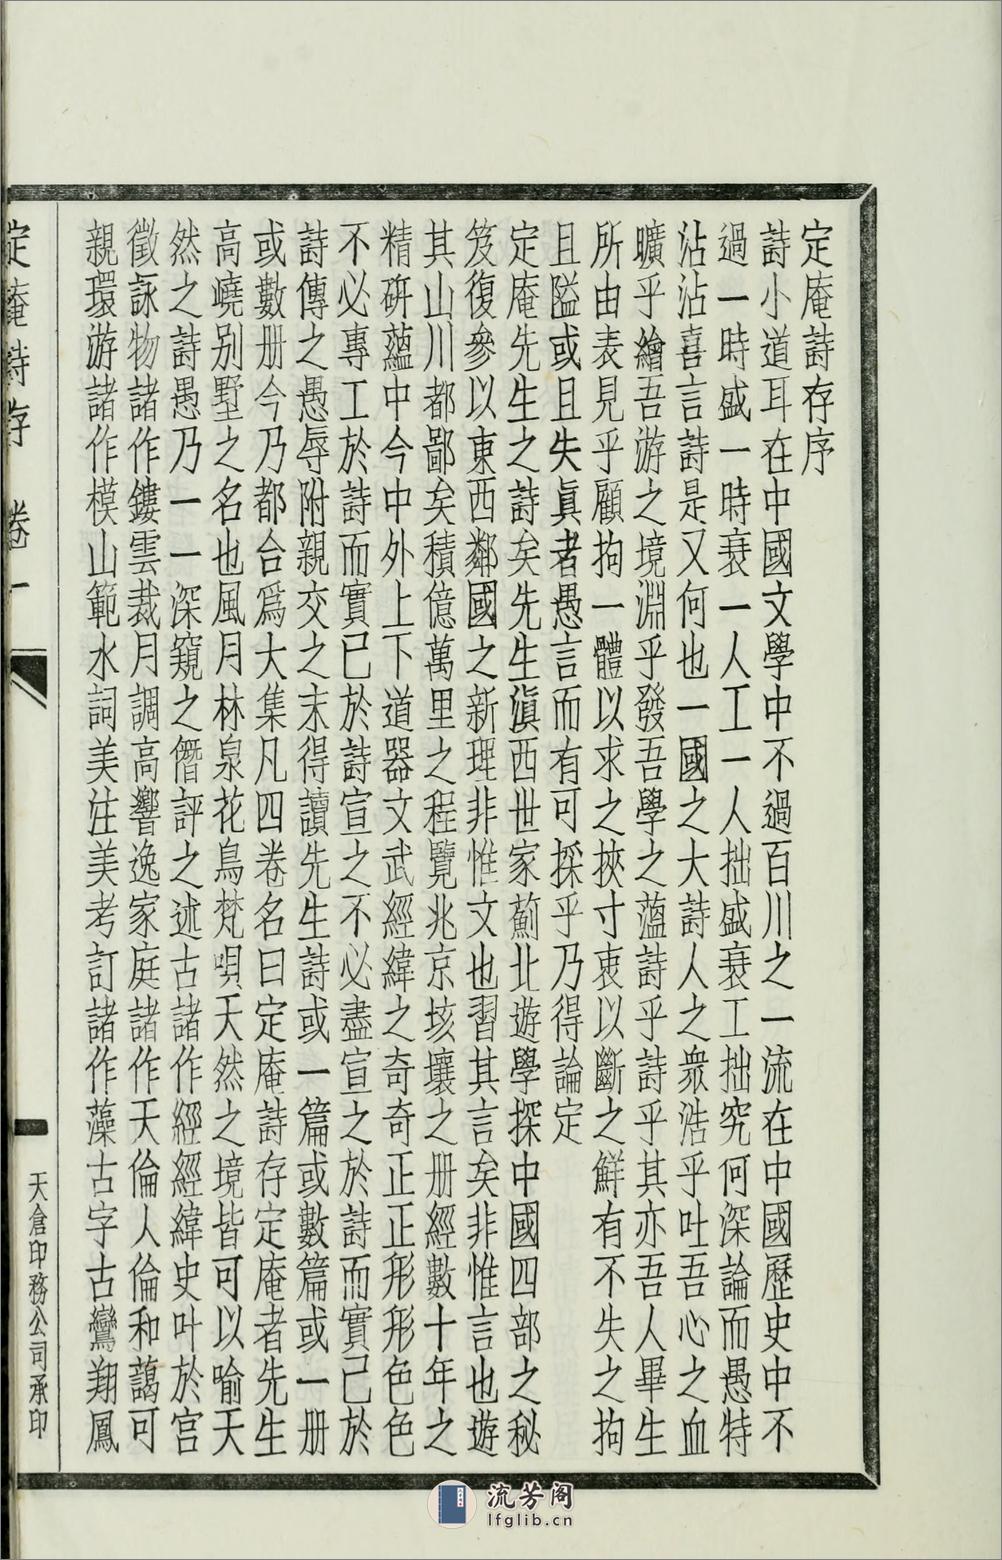 定庵詩存序
詩小道耳在中國文學中不過百川之一流在中國歷史中不
過一時盛一時衰一人工一人拙盛衰工拙究何深論而愚特
沾沾喜言詩是又何也一國之大詩人之衆浩乎吐吾心之血
曠乎繪吾游之境淵乎發吾學之薀詩乎詩乎其亦吾人畢生
所由表見乎顧拘一體以求之挾寸衷以斷之鮮有不失之拘
且隘或且失眞者愚言而有可採乎乃得論定
定庵先生之詩矣先生滇西世家薊北遊學探中國四部之秘
笈復參以東西鄰國之新理非惟文也習其言矣非惟言也遊
其山川都鄙矣積億萬里之程覽兆京垓壤之册經數十年之
精硏蘊中今中外上下道器文武經緯之奇奇正正形形色色
不必專工於詩而實已於詩宣之不必盡宣之於詩而實已於
詩傳之愚辱附親交之末得讀先生詩或一篇或數篇或一册
或數册今乃都合爲大集凡四卷名曰定庵詩存定庵者先生
高嶢别墅之名也風月林泉花鳥梵唄天然之境皆可以喻天
然之詩愚乃一一深窺之僭評之述古諸作經經緯史叶於宫
徵詠物諸作鏤雲裁月調高響逸家庭諸作天倫人倫和藹可
親環游諸作模山範水詞美注美考訂諸作藻古字古鸞翔鳳
定庵詩存 卷一
天倉印務公司承印
流芳阁
lfglib.cn